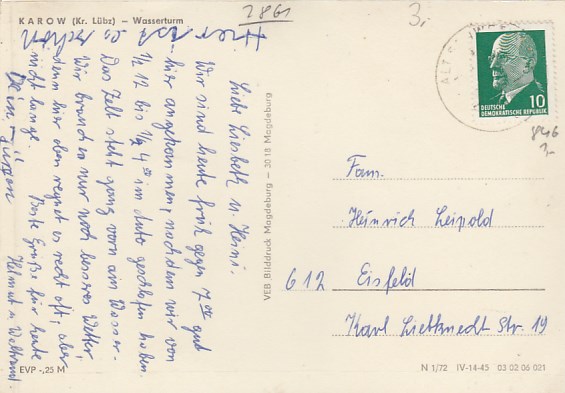 KAROW (Kr. Lübz) — Wasserturm
2861
3,
Hier ist es schön
Liebe Liesbeth u. Heini.
Wir sind heute früh gegen 7 00 gut
hier angekommen, nachdem wir von
1/2 12 bis 1/2 4 00 im Auto geschlafen haben.
Das Zelt steht ganz vorn am Wasser.
Wir brauchen nur noch besseres Wetter,
denn hier oben regnet es recht oft, aber
nicht lange. Beste Grüße für heute
Helmut u. Waltraud
Jürgen
VEB Bilddruck Magdeburg — 3018 Magdeburg
DEUTSCHE
DEMOKRATISCHE REPUBLIK
10
846
3,-
Fam.
Heinrich Leipold
612 Eisfeld
Karl Liebknecht Str. 19
EVP -,25 M
N 1/72 IV-14-45 03 02 06 021